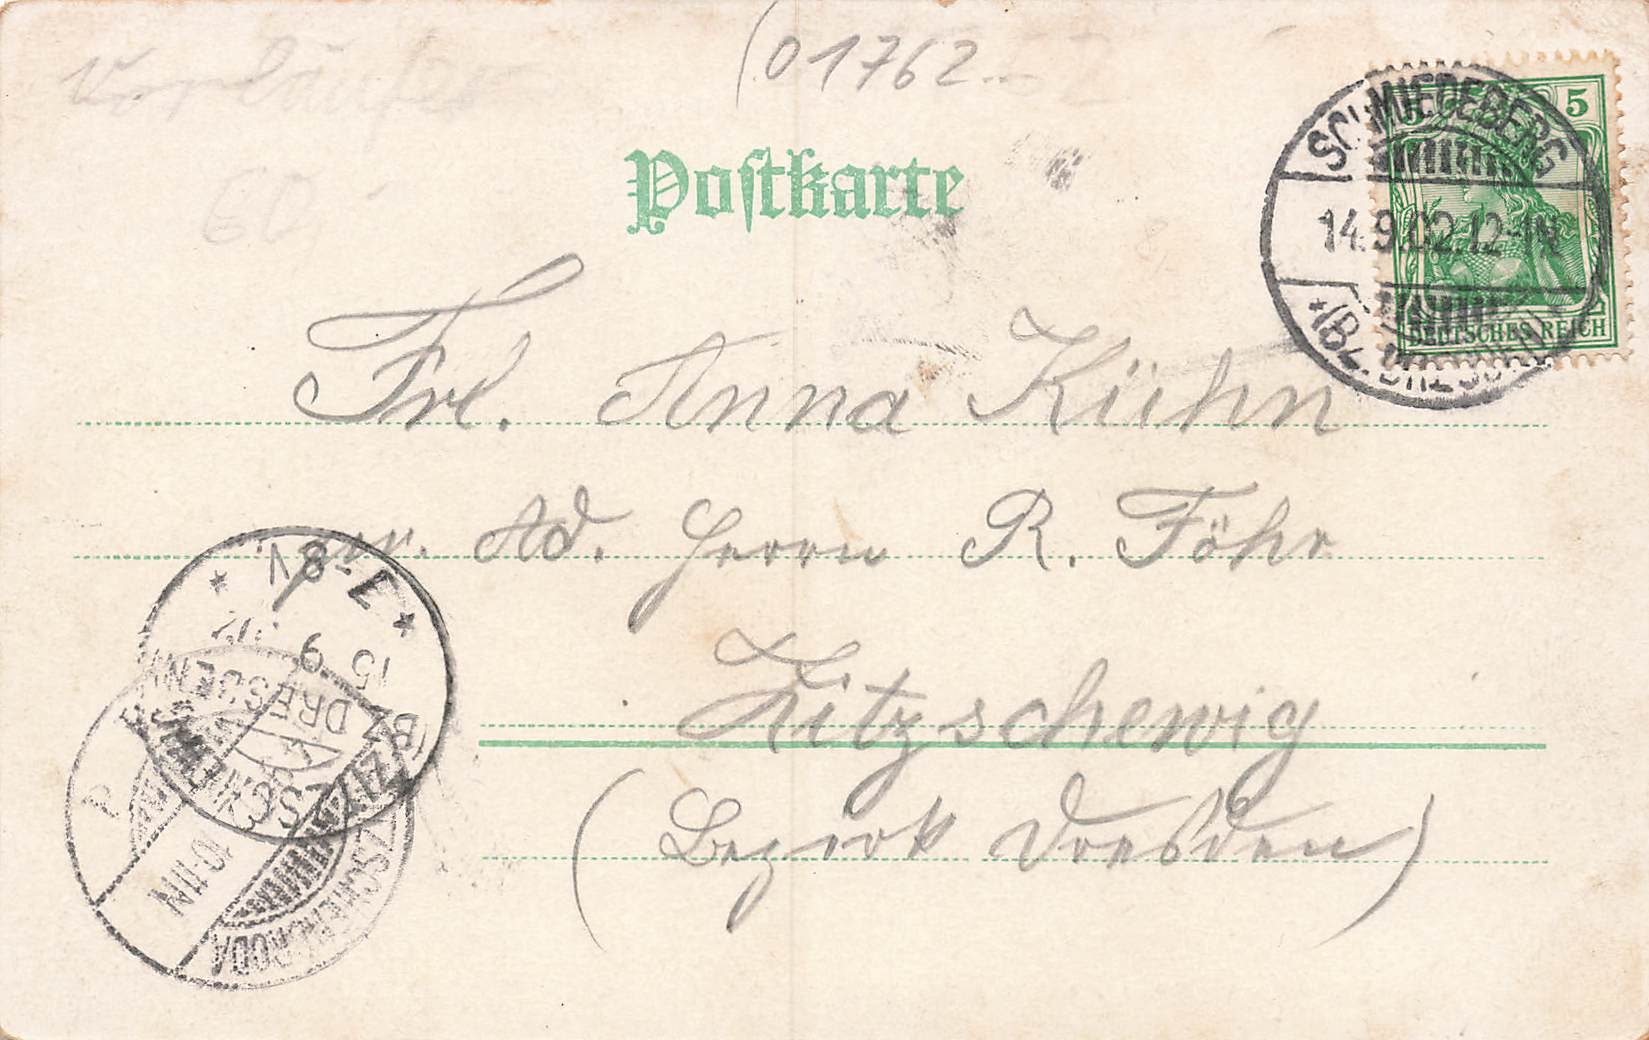 Vorläufer
(01762
60
Postkarte
SCHMIEDEBERG
14.9.02.12-1N
*(BZ. DRESDEN)
5
DEUTSCHES REICH
Frl. Anna Kühn
per. Ad. Herrn R. Föhr
Kitzschewig
(Bezirk Dresden)
* 7-8V *
15 9 02
(BZ DRESDEN)
10-11N